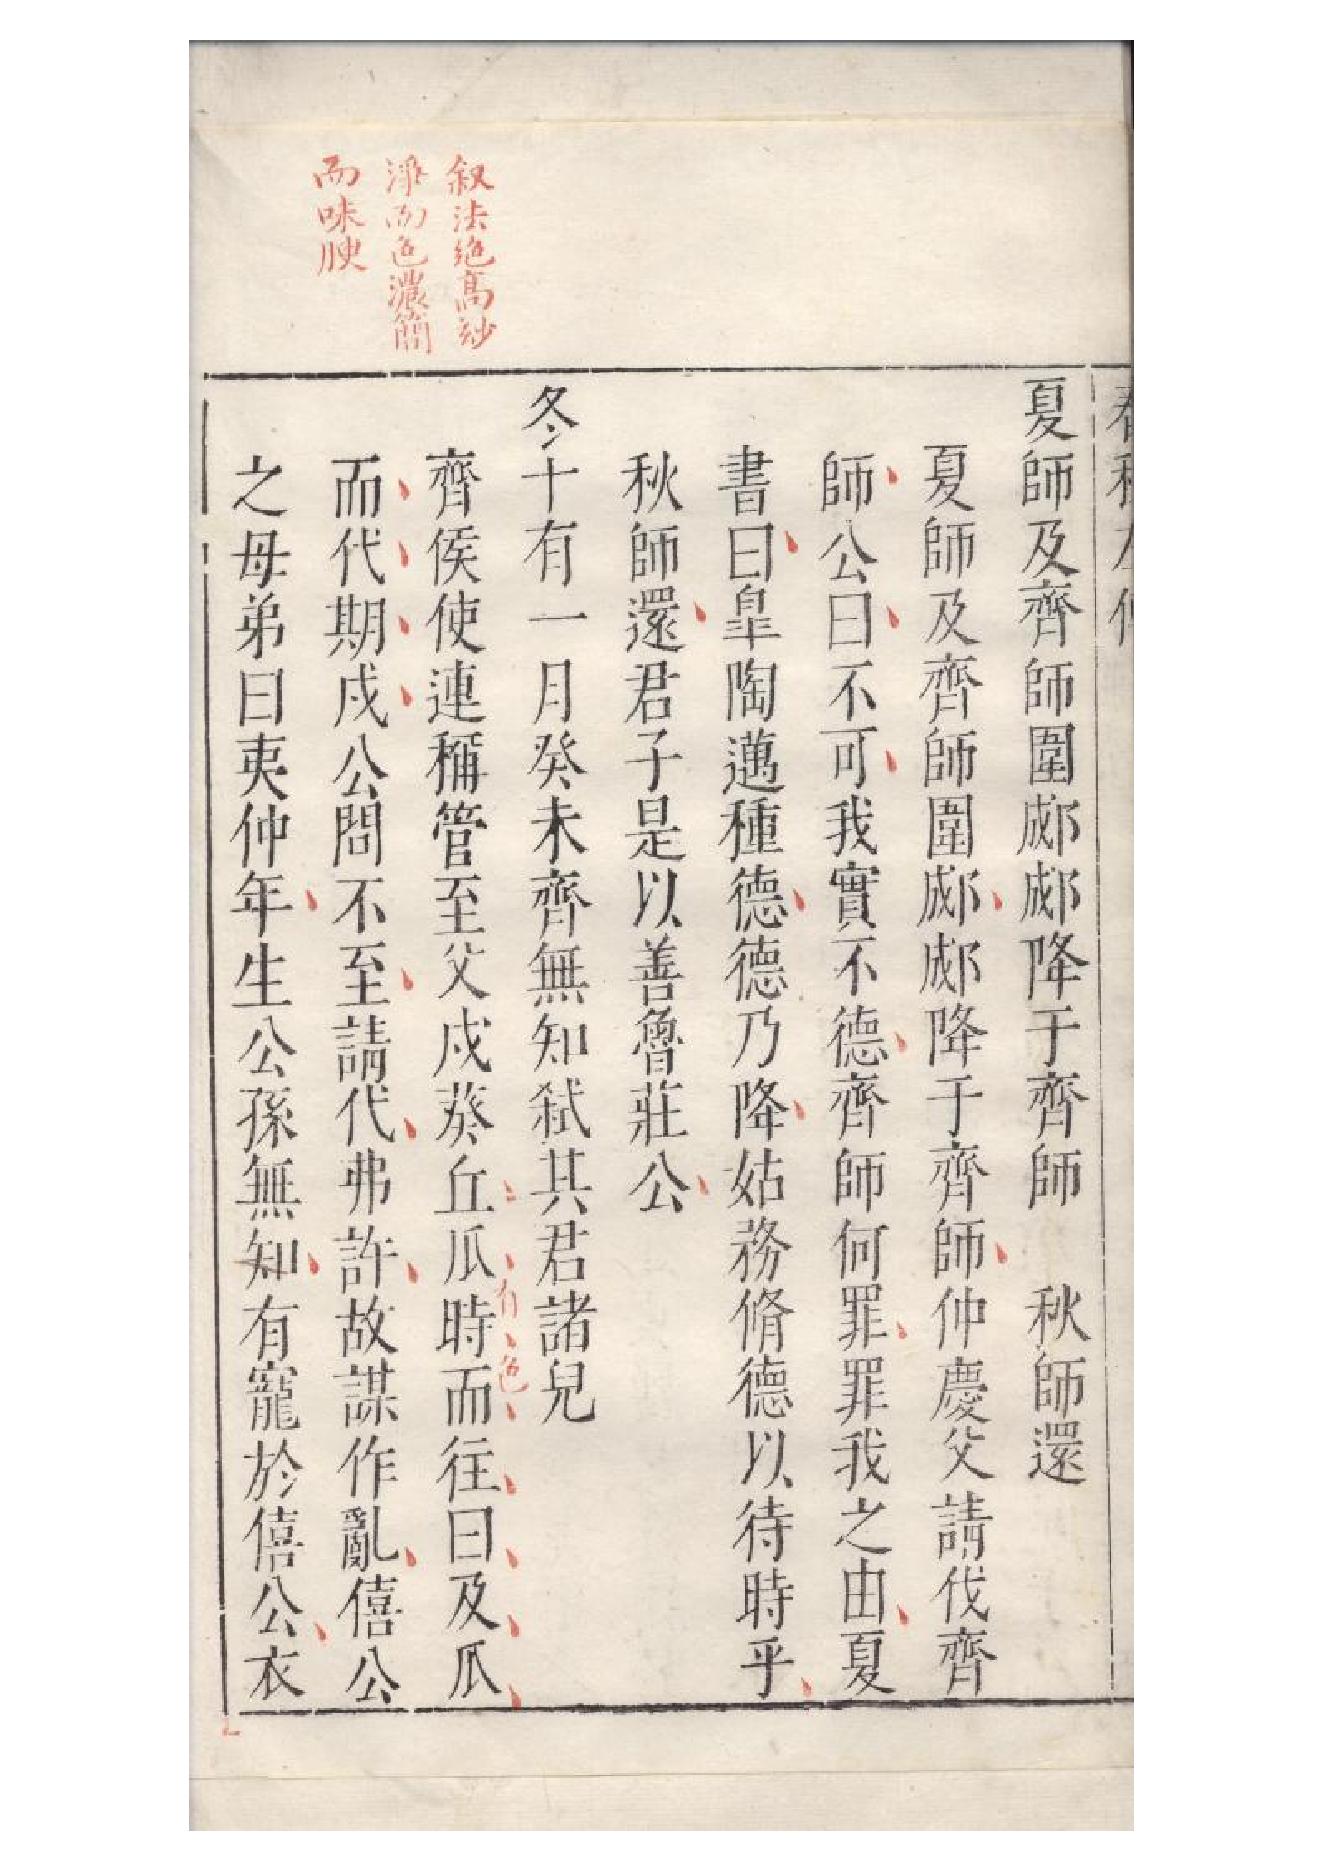 春秋左傳
夏師及齊師圍郕郕降于齊師　秋師還
夏師及齊師圍郕郕降于齊師仲慶父請伐齊
師公曰不可我實不德齊師何罪罪我之由夏
書曰皐陶邁種德德乃降姑務脩德以待時乎
秋師還君子是以善魯莊公
冬十有一月癸未齊無知弒其君諸兒
齊侯使連稱管至父戍葵丘瓜時而往曰及瓜
有色
而代期戍公問不至請代弗許故謀作亂僖公
之母弟曰夷仲年生公孫無知有寵於僖公衣
叙法絶高玅
淨而色濃簡
而味腴